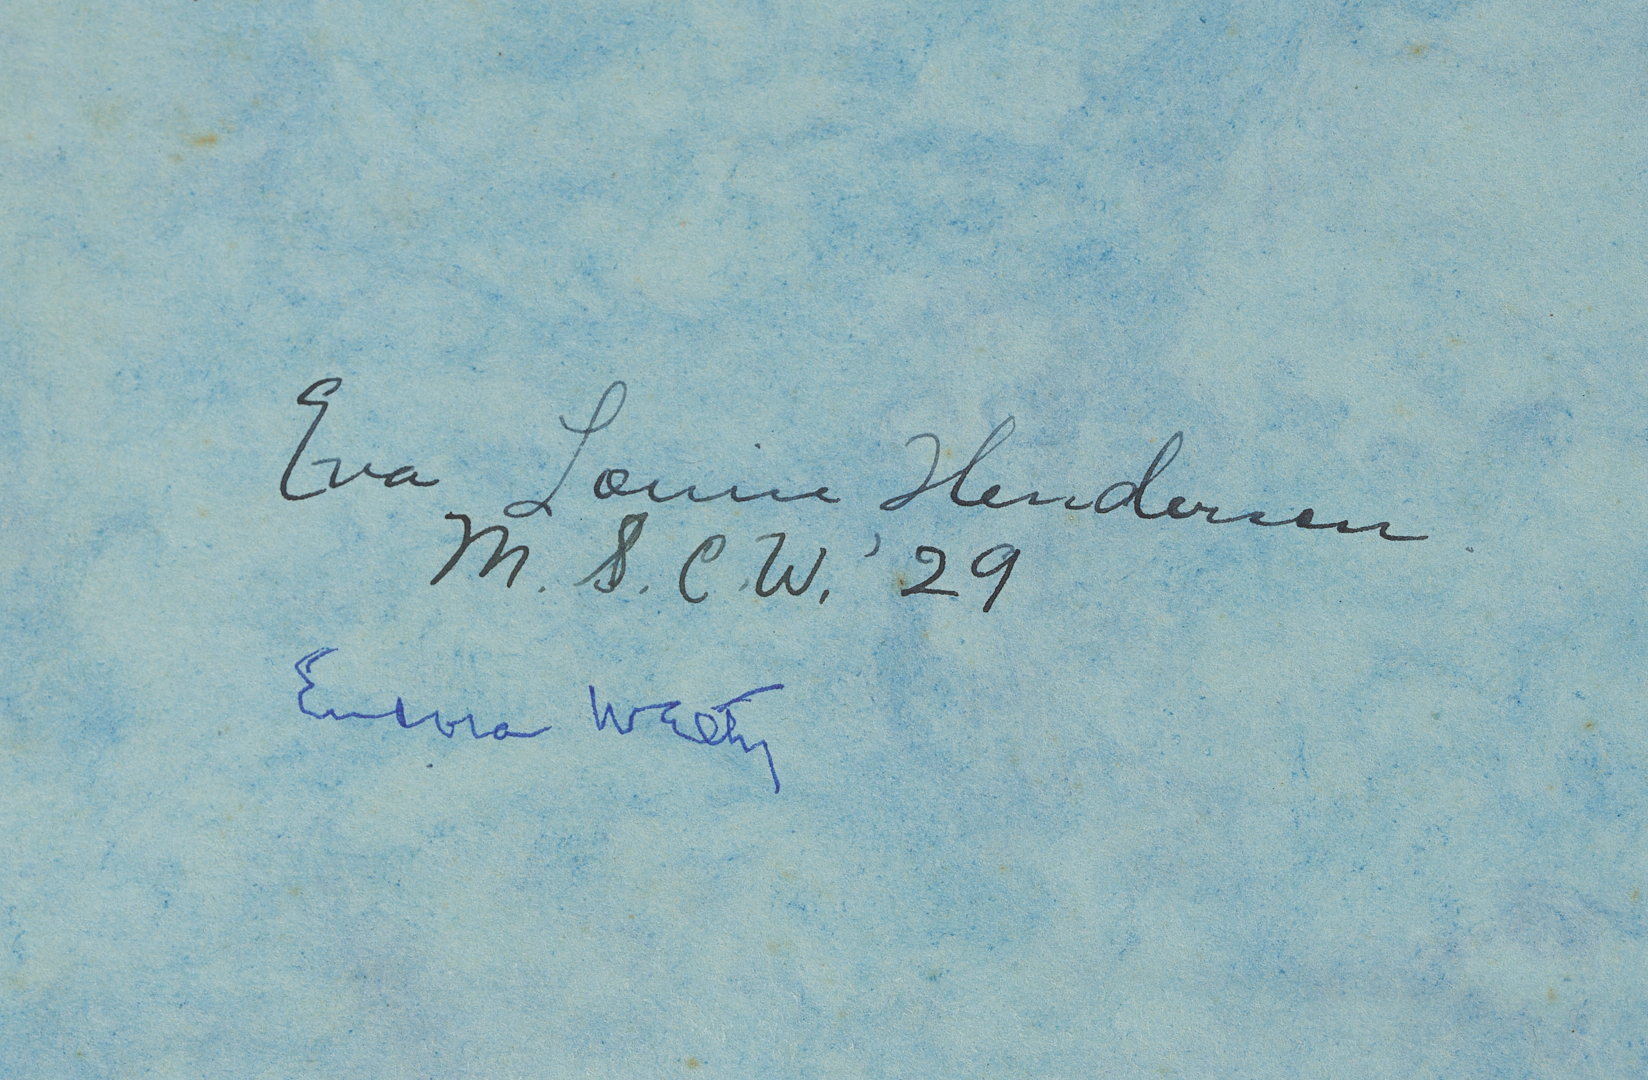 Eva Louise Henderson
M. S. C. W. '29
Eudora Welty